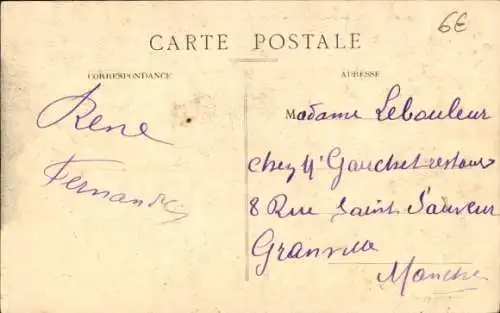 6€
CARTE POSTALE
CORRESPONDANCE
ADRESSE
René
Fernande
Madame Lebouleur
chez Mr Gauchet restaur
8 Rue Saint Sauveur
Granville
Manche